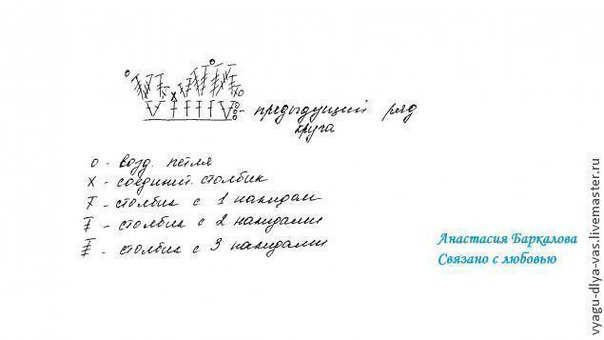 предыдущий ряд
круга
о - возд. петля
х - соединит. столбик
- столбик с 1 накидом
- столбик с 2 накидами
- столбик с 3 накидами
Анастасия Баркалова
Связано с любовью
vyagu-dlya-vas.livemaster.ru